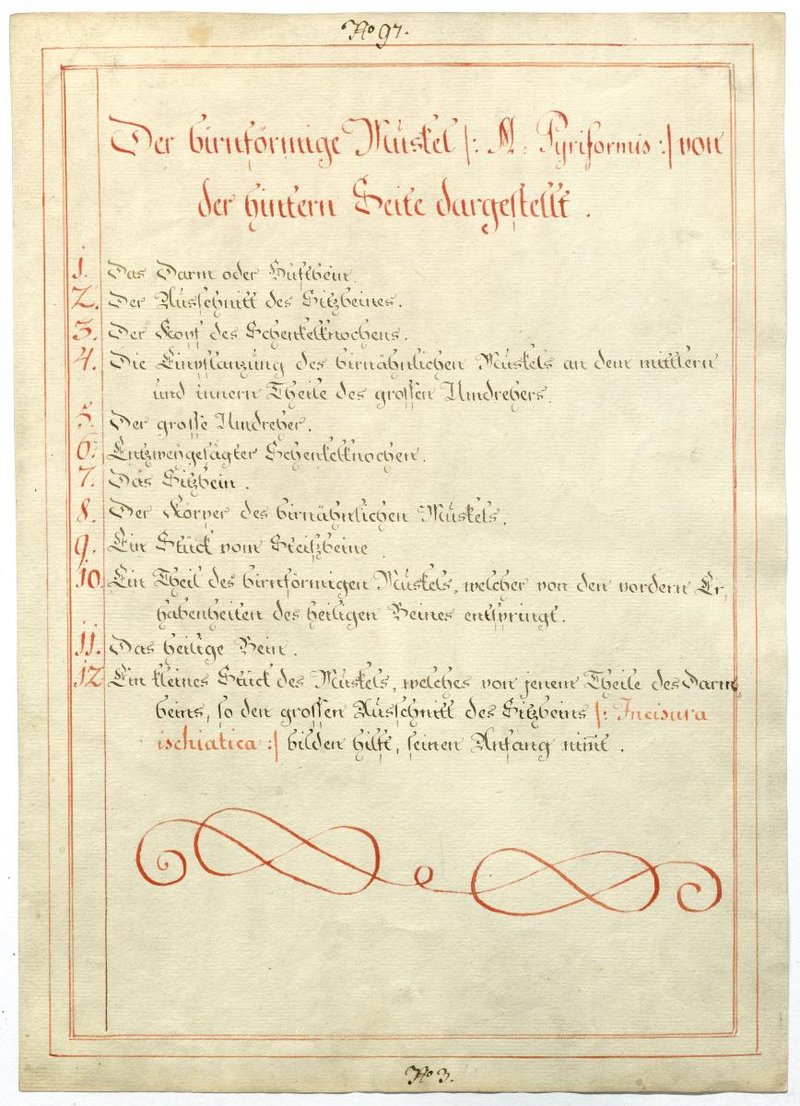 No 97.
Der birnförmige Muskel |: M. Pyriformis :| von
der hintern Seite dargestellt.
1. Das Darm oder Hüftbein.
2. Der Ausschnitt des Sitzbeines.
3. Der Kopf des Schenkelknochens.
4. Die Einpflanzung des birnähnlichen Muskels an dem mittlern
und innern Theile des grossen Umdrehers.
5. Der grosse Umdreher.
6. Entzweygesägter Schenkelknochen.
7. Das Sitzbein.
8. Der Körper des birnähnlichen Muskels.
9. Ein Stück vom Steißbeine.
10. Ein Theil des birnförmigen Muskels, welcher von den vordern Er,
habenheiten des heiligen Beines entspringt.
11. Das heilige Bein.
12 Ein kleines Stück des Muskels, welches von jenem Theile des Darm,
beins, so den grossen Ausschnitt des Sitzbeins |: Incisura
ischiatica :| bilden hilft, seinen Anfang nim̅t.
No 3.